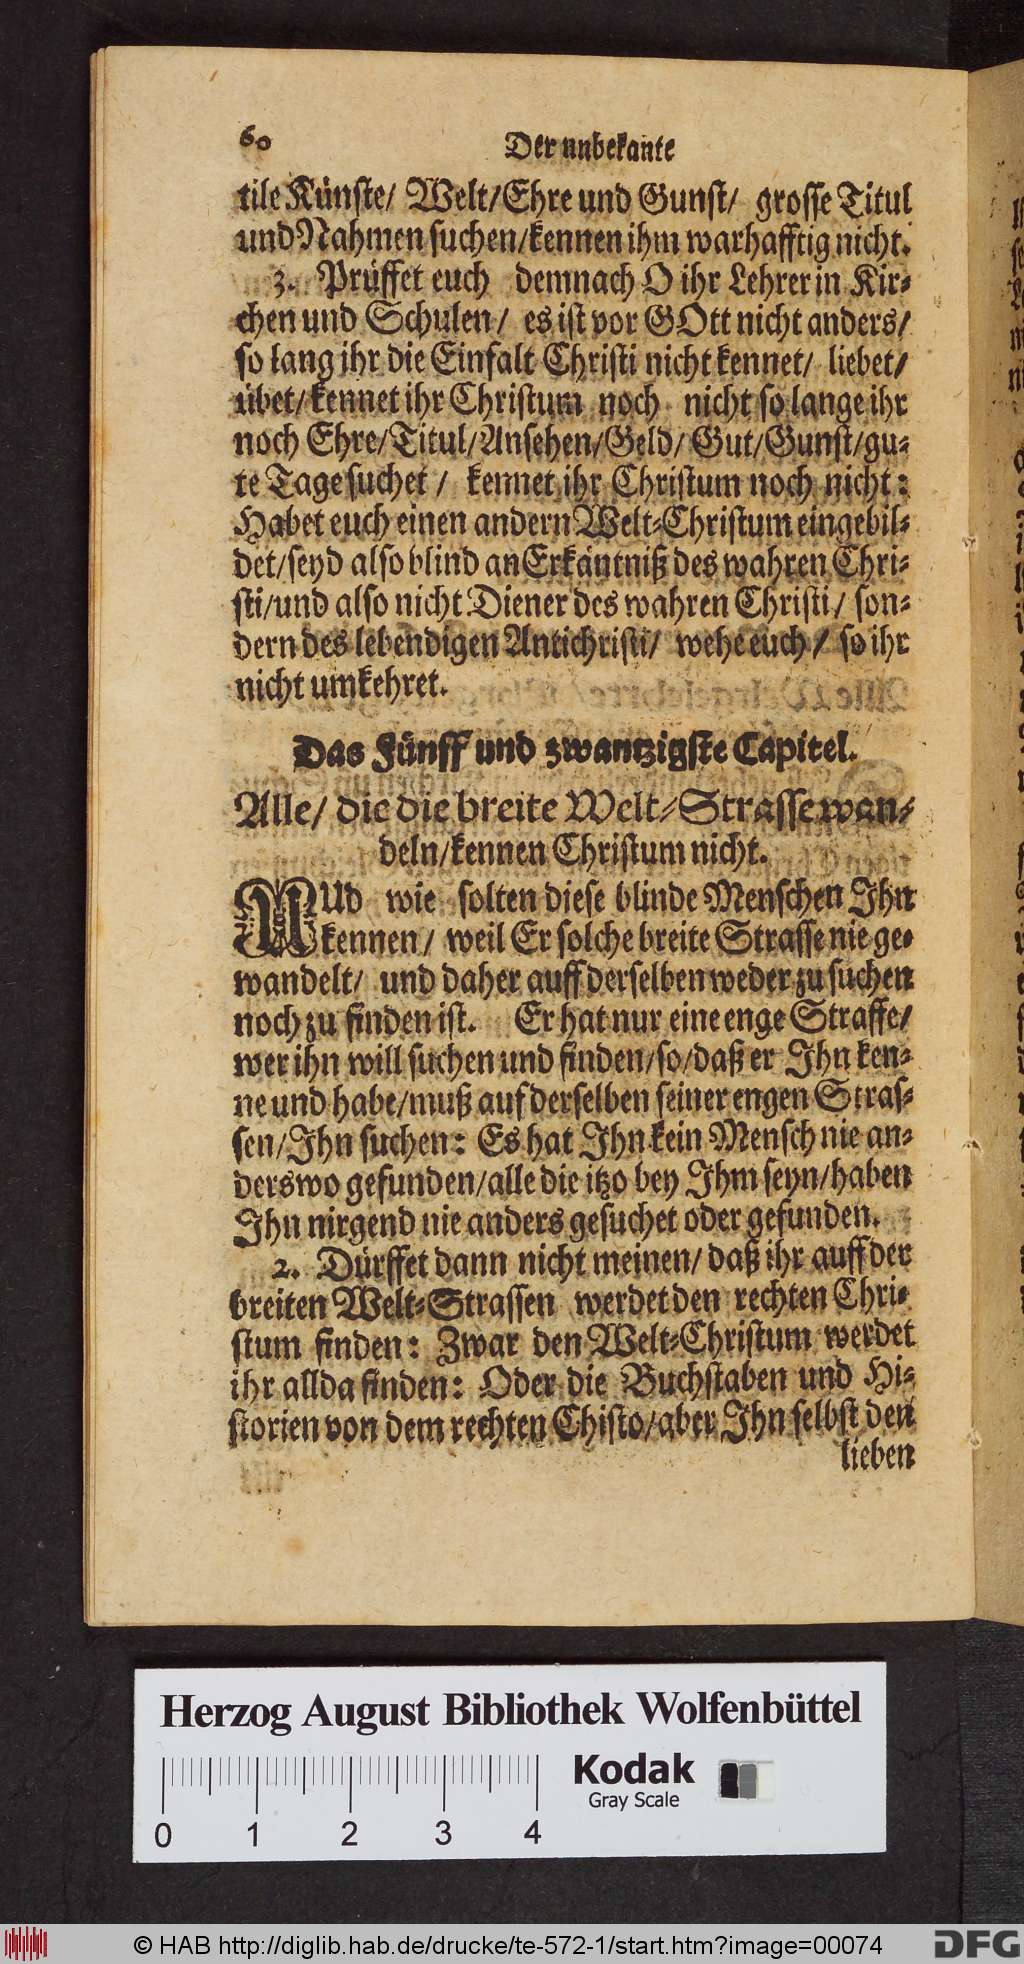 60
Der unbekante
tile Künste/ Welt/Ehre und Gunst/ grosse Titul
und Nahmen suchen/kennen ihm warhafftig nicht.
3. Prüffet euch demnach O ihr Lehrer in Kir-
chen und Schulen/ es ist vor GOtt nicht anders/
so lang ihr die Einfalt Christi nicht kennet/ liebet/
übet/kennet ihr Christum noch nicht so lange ihr
noch Ehre/Titul/Ansehen/Geld/ Gut/Gunst/gu-
te Tage suchet/ kennet ihr Christum noch nicht:
Habet euch einen andern Welt-Christum eingebil-
det/seyd also blind an Erkäntniß des wahren Chri-
sti/und also nicht Diener des wahren Christi/ son-
dern des lebendigen Antichristi/ wehe euch/ so ihr
nicht umkehret.
Das Fünff und zwantzigste Capitel.
Alle/ die die breite Welt-Strasse wan-
deln/kennen Christum nicht.
UUd wie solten diese blinde Menschen Ihn
kennen/ weil Er solche breite Strasse nie ge-
wandelt/ und daher auff derselben weder zu suchen
noch zu finden ist. Er hat nur eine enge Strasse/
wer ihn will suchen und finden/so/daß er Ihn ken-
ne und habe/muß auf derselben seiner engen Stras-
sen/Ihn suchen: Es hat Ihn kein Mensch nie an-
derswo gefunden/alle die itzo bey Ihm seyn/haben
Ihn nirgend nie anders gesuchet oder gefunden.
2. Dürffet dann nicht meinen/ daß ihr auff der
breiten Welt-Strassen werdet den rechten Chri-
stum finden: Zwar den Welt-Christum werdet
ihr allda finden: Oder die Buchstaben und Hi-
storien von dem rechten Chisto/aber Ihn selbst den
lieben
Herzog August Bibliothek Wolfenbüttel
Kodak
Gray Scale
0 1 2 3 4
© HAB http://diglib.hab.de/drucke/te-572-1/start.htm?image=00074
DFG